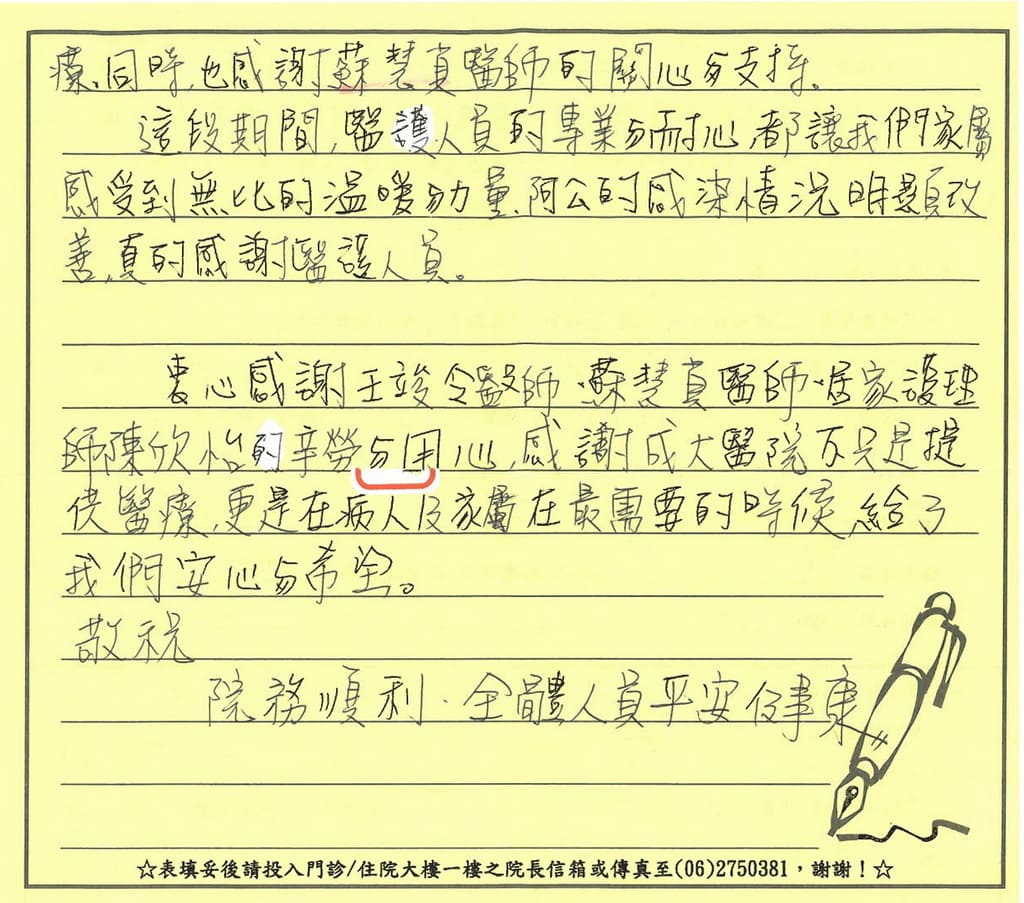 療、同時,也感謝蘇慧真醫師的關心与支持。
這段期間,醫護人員的專業与耐心,都讓我們家屬
感受到無比的溫暖与力量,阿公的感染情況明顯改
善,真的感謝醫護人員。
衷心感謝王竣令醫師、蘇慧真醫師、居家護理
師陳欣怡的辛勞与用心,感謝成大醫院不只是提
供醫療,更是在病人及家屬在最需要的時候,給了
我們安心与希望。
敬祝
院務順利、全體人員平安健康
☆表填妥後請投入門診/住院大樓一樓之院長信箱或傳真至(06)2750381,謝謝!☆